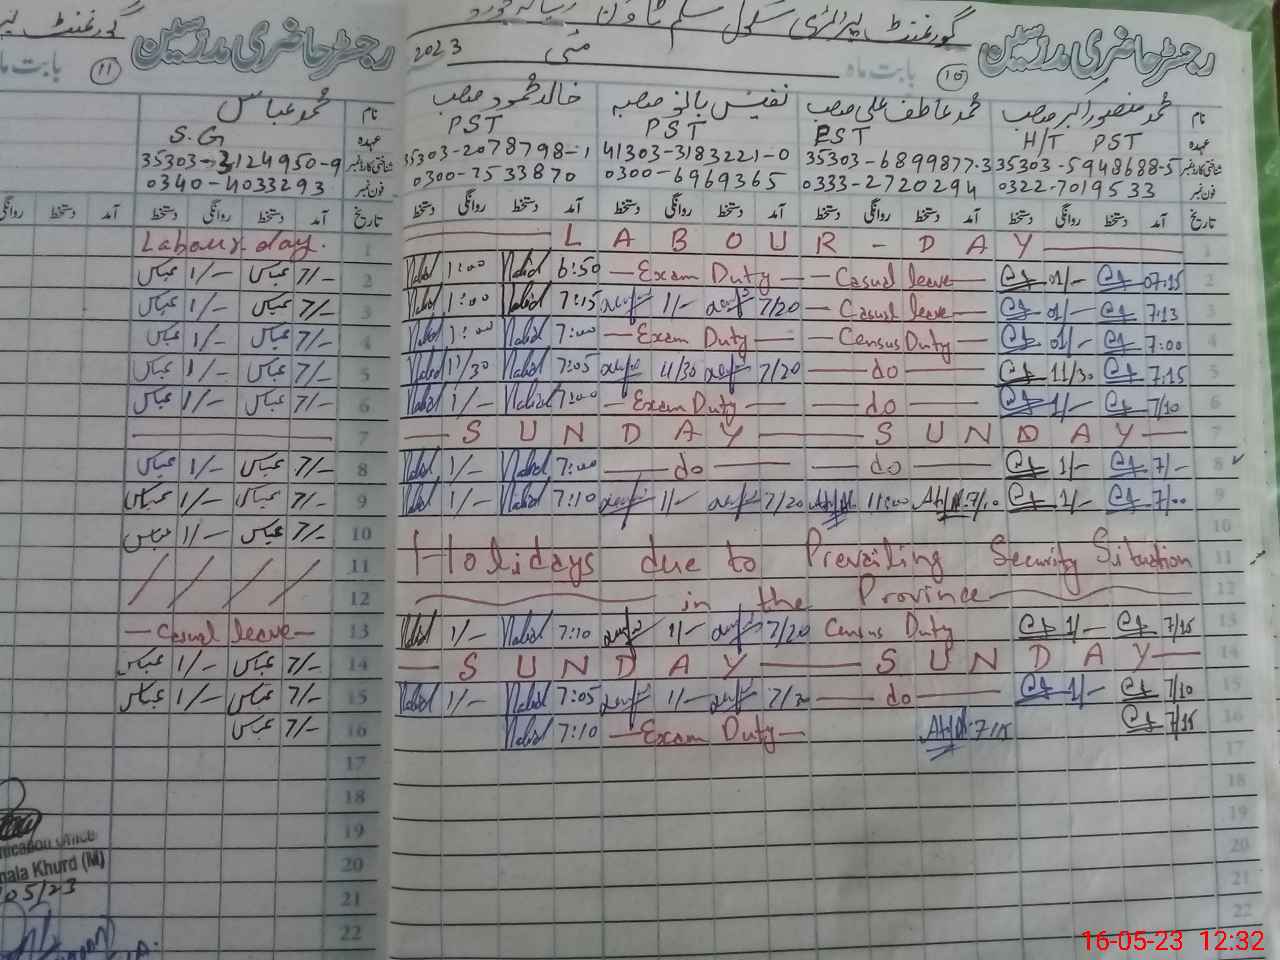 گورنمنٹ پرائمری سکول
رجسٹر حاضری مدرسین
10
بابت ماہ
مئی
2023
نام
محمد منصور اکبر صاحب
محمد عاطف علی صاحب
نفیس بانو صاحبہ
خالد محمود صاحب
عہدہ
H/T PST
PST
PST
PST
شناختی کارڈ نمبر
35303-5948688-5
35303-6899877-3
41303-3183221-0
35303-2078798-1
فون نمبر
0322-7019533
0333-2720294
0300-6969365
0300-7533870
تاریخ آمد دستخط روانگی دستخط آمد دستخط روانگی دستخط آمد دستخط روانگی دستخط آمد دستخط روانگی دستخط
1 LABOUR-DAY
2 07:15 01/- Casual leave Exam Duty 6:50 1:00
3 7:13 01/- Casual leave 7/20 1/- 7:15 1:00
4 7:00 01/- Census Duty Exam Duty 7:00 1:00
5 7:15 11/30 do 7/20 11/30 7:05 11/30
6 7/10 1/- do Exam Duty 7:00 1/-
7 SUNDAY SUNDAY
8 7/- 1/- do do 7:00 1/-
9 7/00 1/- 7/10 11:00 7/20 1/- 7:10 1/-
10
11 Holidays due to Prevailing Security Situation
12 in the Province
13 7/15 1/- Census Duty 7/20 1/- 7:10 1/-
14 SUNDAY SUNDAY
15 7/10 1/- do 1/- 7:05 1/-
16 7/15 7/15 Exam Duty 7:10
17
18
19
20
21
22
گورنمنٹ
رجسٹر حاضری مدرسین
11
بابت ماہ
نام
محمد عباس
عہدہ
S.G
شناختی کارڈ نمبر
35303-3124950-9
فون نمبر
0340-4033293
تاریخ آمد دستخط روانگی دستخط آمد دستخط روانگی
1 Labour day.
2 7/- عباس 1/- عباس
3 7/- عباس 1/- عباس
4 7/- عباس 1/- عباس
5 7/- عباس 1/- عباس
6 7/- عباس 1/- عباس
7
8 7/- عباس 1/- عباس
9 7/- عباس 1/- عباس
10 7/- عباس 1/- عباس
11
12
13 Casual leave
14 7/- عباس 1/- عباس
15 7/- عباس 1/- عباس
16 7/- عباس
17
18
19
20
21
22
Office
Khurd (M)
05/23
16-05-23 12:32